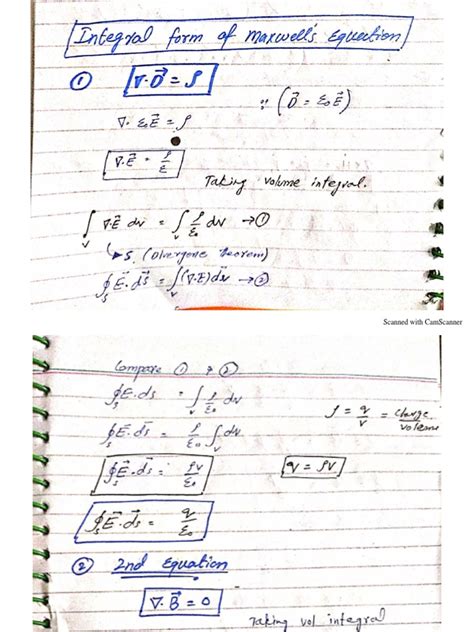 Integral form of maxwell's equation
① ∇·D⃗ = ρ
∵ (D⃗ = ε₀E⃗)
∇· ε₀E⃗ = ρ
∇·E⃗ = ρ/ε
Taking volume integral.
∫ᵥ ∇·E⃗ dv = ∫ᵥ ρ/ε₀ dv → ①
↳ S. (Divergence theorem)
∮ₛ E⃗·ds⃗ = ∫ᵥ (∇·E) dv → ②
Scanned with CamScanner
Compare ① & ②
∮ₛ E·ds = ∫ᵥ ρ/ε₀ dv
ρ = q/v = charge/volume
∮ₛ E·ds = ρ/ε₀ ∫ᵥ dv
∮ₛ E⃗·ds = ρv/ε₀
q = ρv
∮ₛ E⃗·ds = q/ε₀
② 2nd equation
∇·B⃗ = 0
Taking vol integral